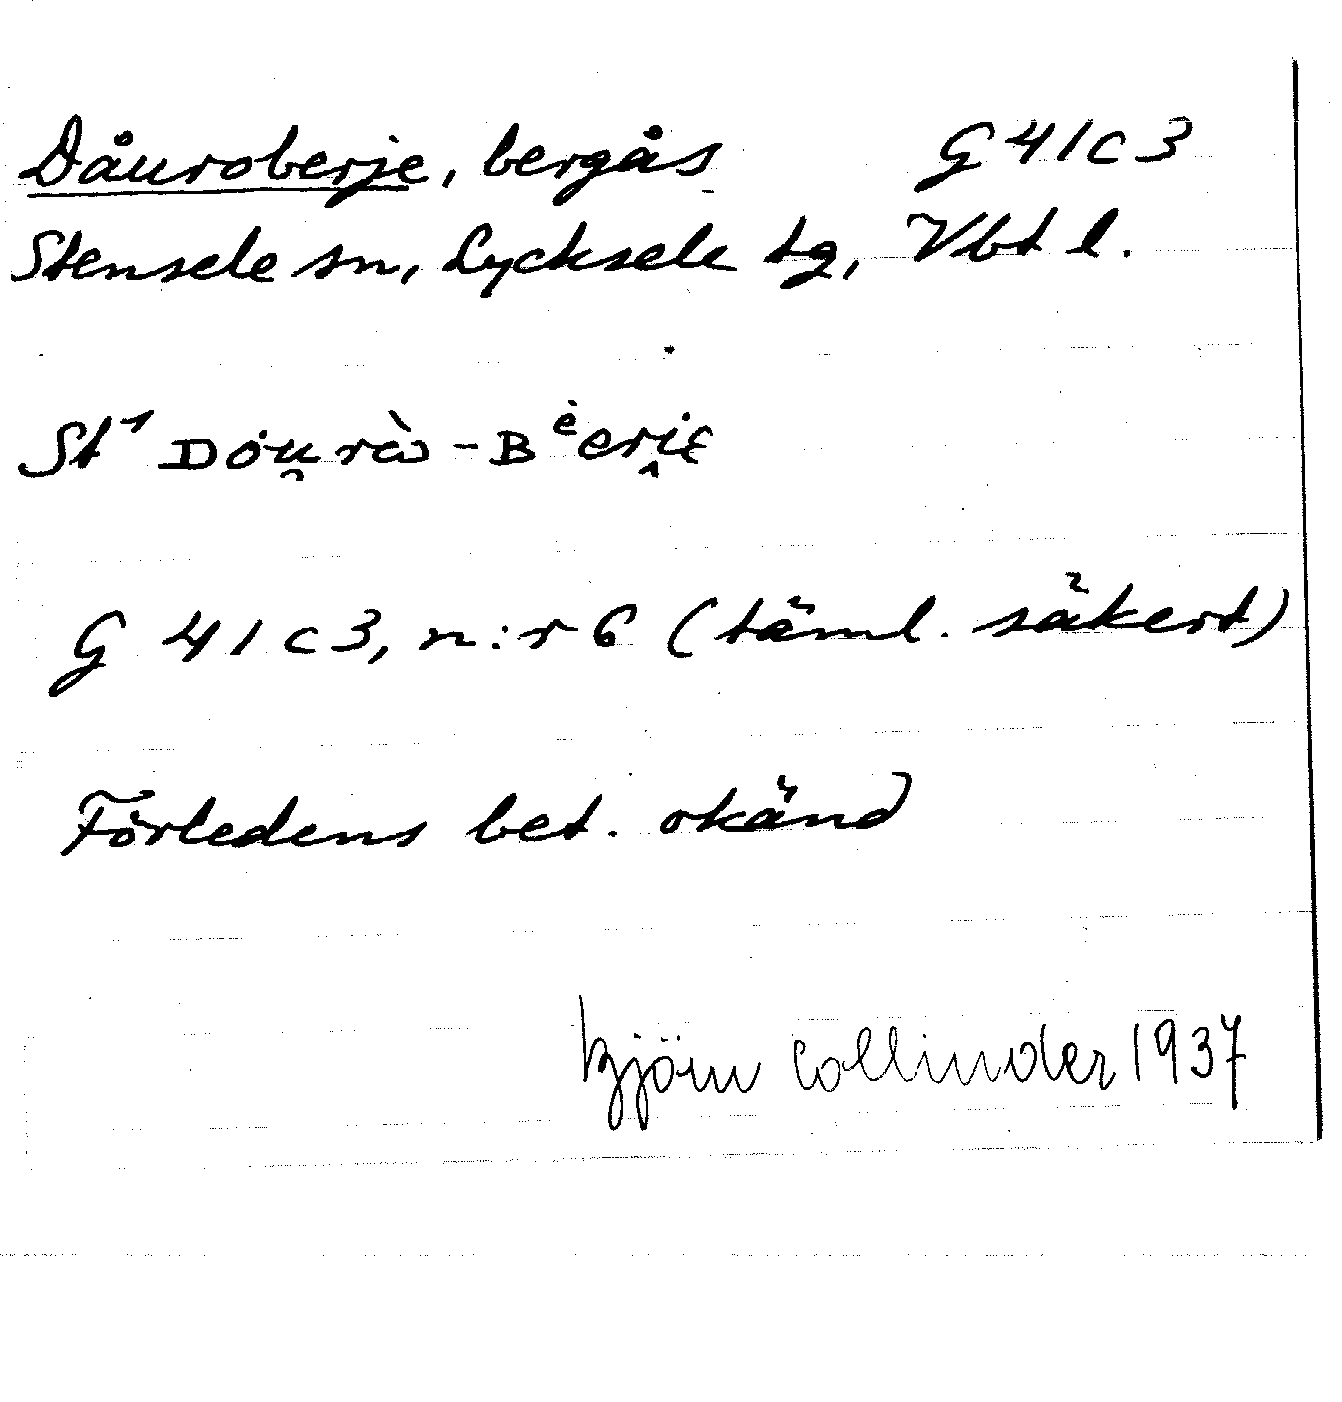 Dåuroberje, bergås G 41 c 3
Stensele sn, Lycksele tg, Vbt l.
St¹ ᴅȯu̯rὼ-ʙᵉ̀eri̭ε
G 41 c 3, n:r 6 (täml. säkert)
Förledens bet. okänd
Björn Collinder 1937